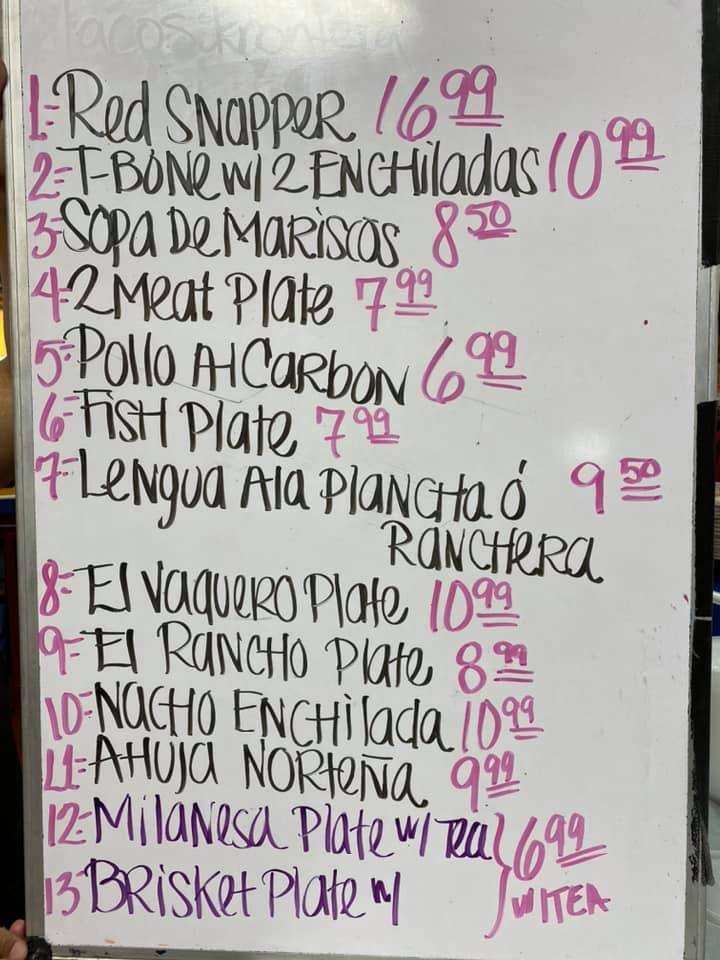 1- Red Snapper 16 99
2- T-Bone w/ 2 Enchiladas 10 99
3- Sopa De Mariscos 8 50
4- 2 Meat Plate 7 99
5- Pollo Al Carbon 6 99
6- Fish Plate 7 99
7- Lengua Ala Plancha ó 9 50
Ranchera
8- El Vaquero Plate 10 99
9- El Rancho Plate 8 99
10- Nacho Enchilada 10 99
11- Ahuja Norteña 9 99
12- Milanesa Plate w/ Tea } 6 99
13- Brisket Plate w/ w/TEA